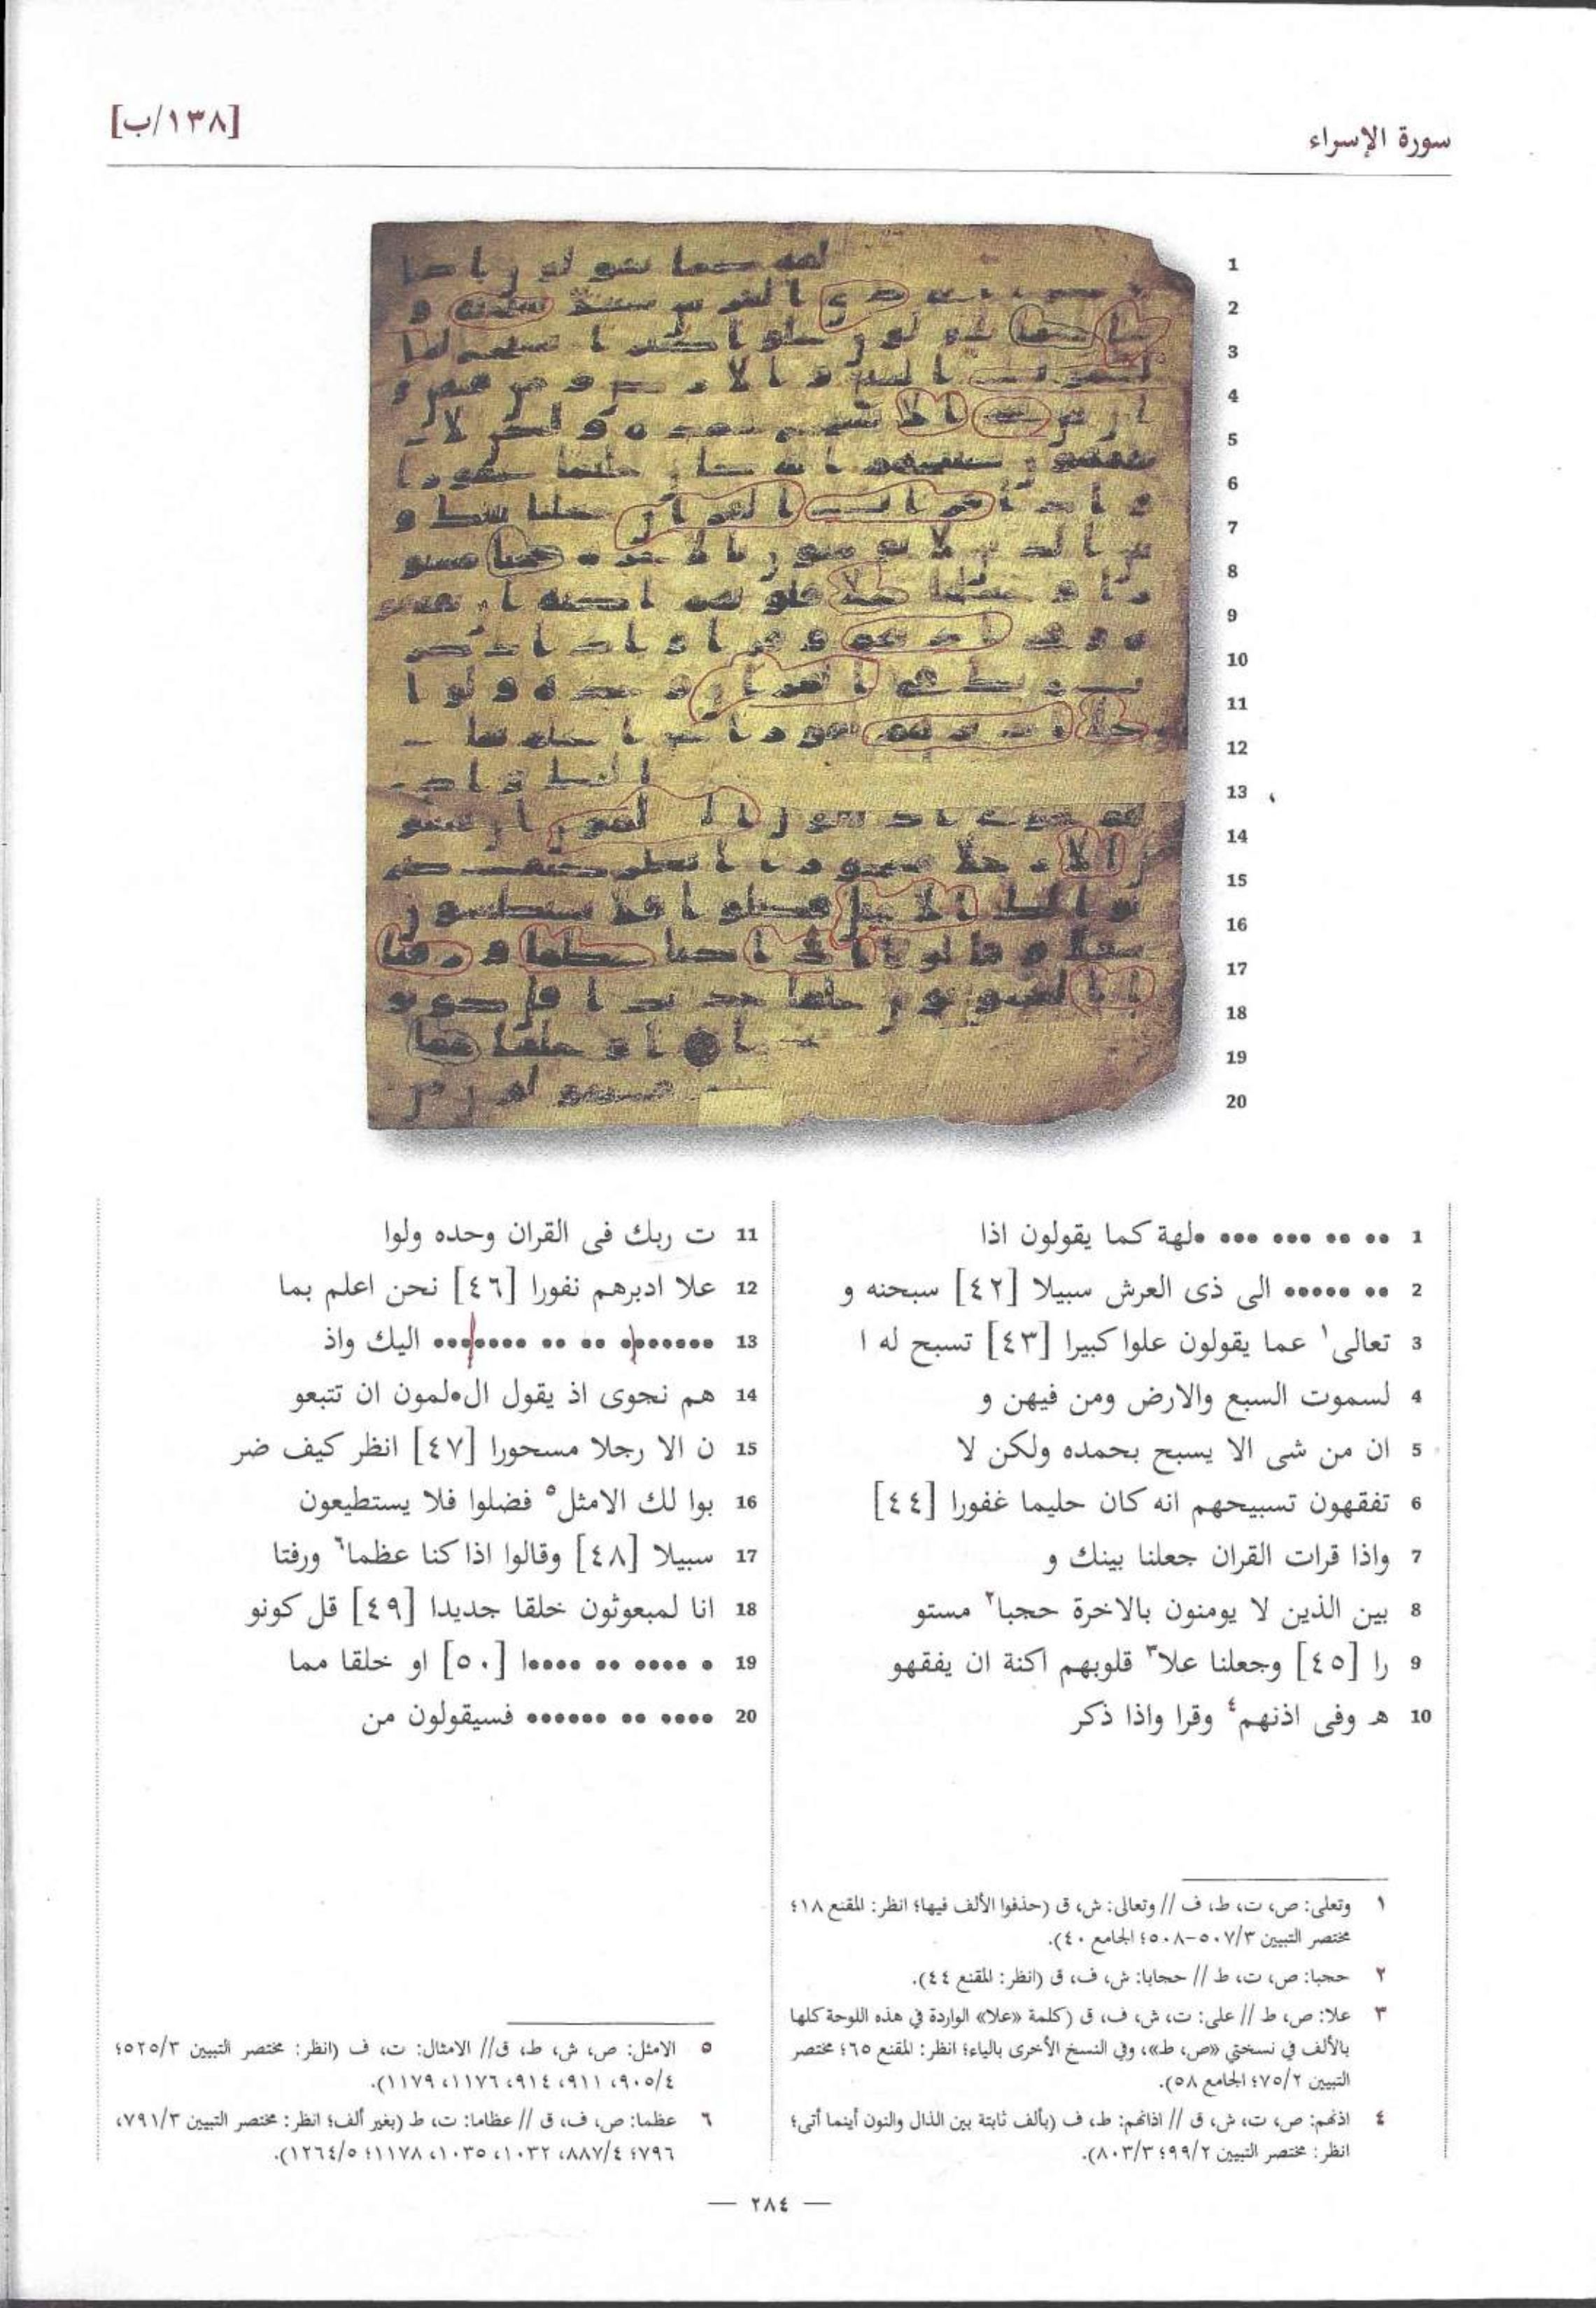 سورة الإسراء
[١٣٨/ب]
1 •• •• ••• ••• ••• •لهة كما يقولون اذا
2 •• ••••• الى ذى العرش سبيلا [٤٢] سبحنه و
3 تعالى١ عما يقولون علوا كبيرا [٤٣] تسبح له ا
4 لسموت السبع والارض ومن فيهن و
5 ان من شى الا يسبح بحمده ولكن لا
6 تفقهون تسبيحهم انه كان حليما غفورا [٤٤]
7 واذا قرات القران جعلنا بينك و
8 بين الذين لا يومنون بالاخرة حجبا٢ مستو
9 را [٤٥] وجعلنا علا٣ قلوبهم اكنة ان يفقهو
10 هـ وفى اذنهم٤ وقرا واذا ذكر
11 ت ربك فى القران وحده ولوا
12 علا ادبرهم نفورا [٤٦] نحن اعلم بما
13 ••••••• •• •• ••••••• اليك واذ
14 هم نجوى اذ يقول ال•لمون ان تتبعو
15 ن الا رجلا مسحورا [٤٧] انظر كيف ضر
16 بوا لك الامثل٥ فضلوا فلا يستطيعون
17 سبيلا [٤٨] وقالوا اذا كنا عظما٦ ورفتا
18 انا لمبعوثون خلقا جديدا [٤٩] قل كونو
19 • •••• •• ••••ا [٥٠] او خلقا مما
20 •••• •• •••••• فسيقولون من
١ وتعلى: ص، ت، ط، ف // وتعالى: ش، ق (حذفوا الألف فيها؛ انظر: المقنع ١٨؛
مختصر التبيين ٥٠٧/٣-٥٠٨؛ الجامع ٤٠).
٢ حجبا: ص، ت، ط // حجابا: ش، ف، ق (انظر: المقنع ٤٤).
٣ علا: ص، ط // على: ت، ش، ف، ق (كلمة «علا» الواردة في هذه اللوحة كلها
بالألف في نسختي «ص، ط»، وفي النسخ الأخرى بالياء؛ انظر: المقنع ٦٥؛ مختصر
التبيين ٧٥/٢؛ الجامع ٥٨).
٤ اذنهم: ص، ت، ش، ق // اذانهم: ط، ف (بألف ثابتة بين الذال والنون أينما أتى؛
انظر: مختصر التبيين ٩٩/٢؛ ٨٠٣/٣).
٥ الامثل: ص، ش، ط، ق// الامثال: ت، ف (انظر: مختصر التبيين ٥٢٥/٣؛
٩٠٥/٤، ٩١١، ٩١٤، ١١٧٦، ١١٧٩).
٦ عظما: ص، ف، ق // عظاما: ت، ط (بغير ألف؛ انظر: مختصر التبيين ٧٩١/٣،
٧٩٦؛ ٨٨٧/٤، ١٠٣٢، ١٠٣٥، ١١٧٨؛ ١٢٦٤/٥).
— ٢٨٤ —